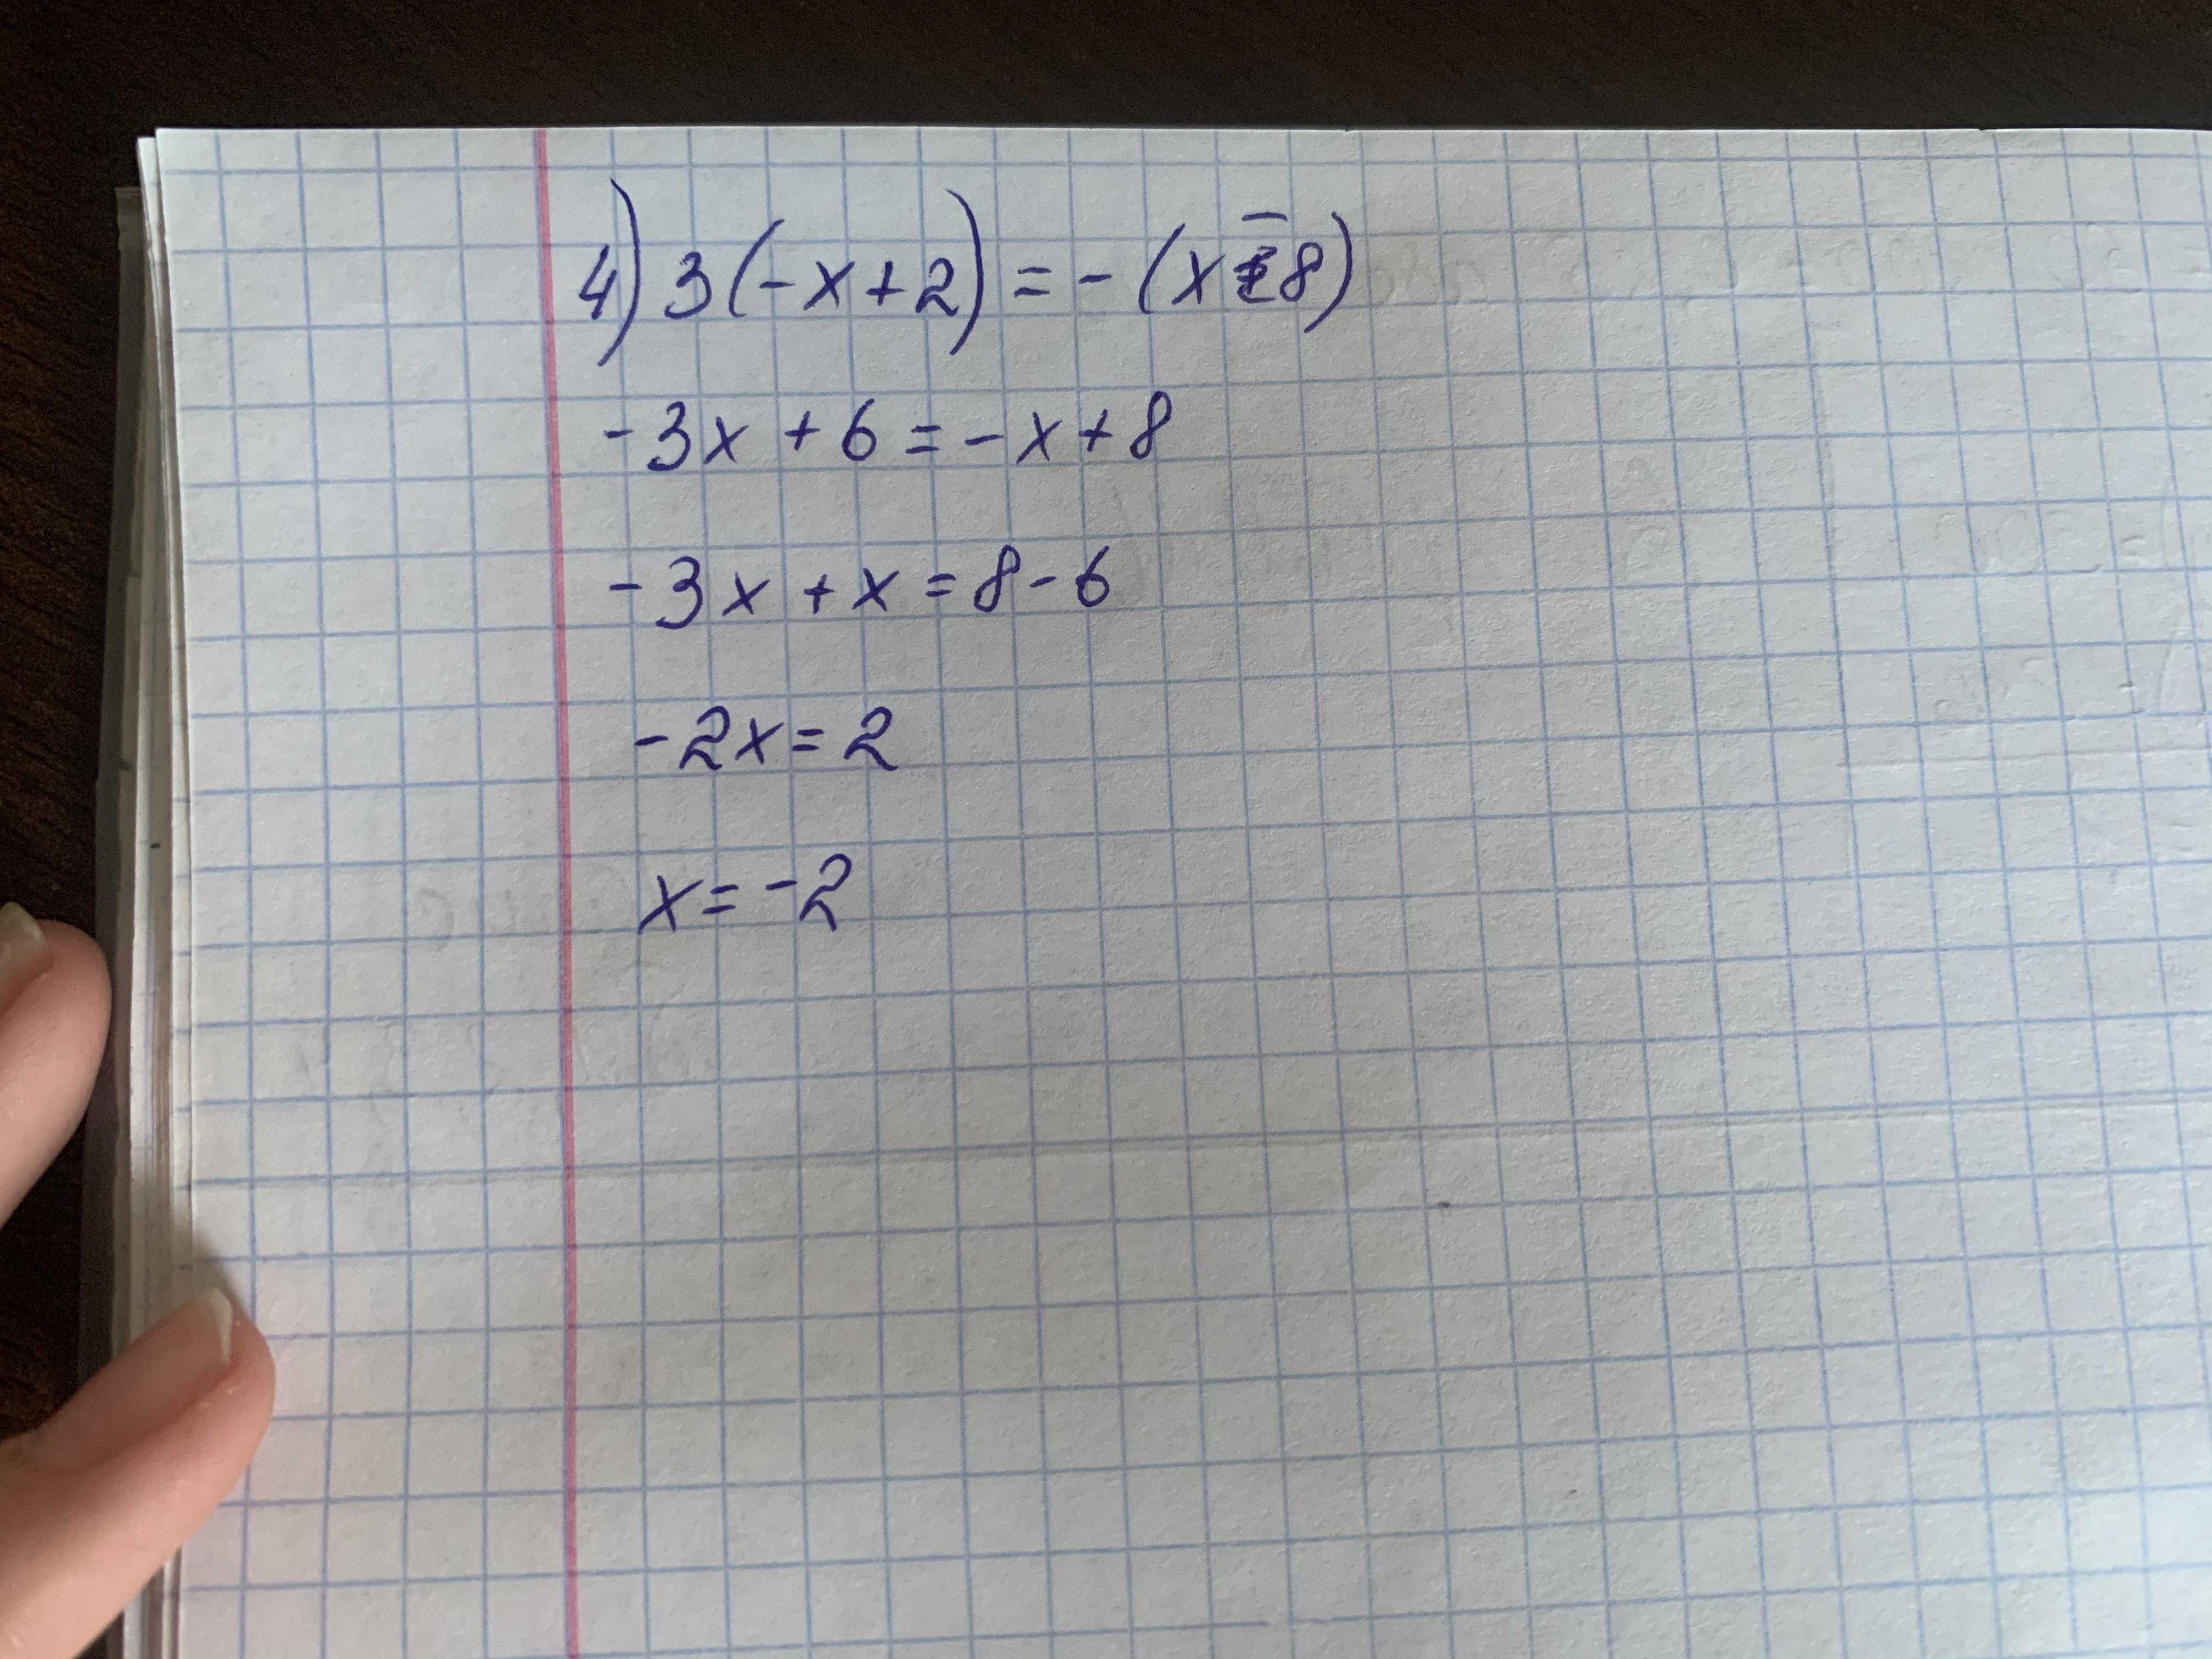 4) 3(-x+2)=-(x-8)
-3x+6=-x+8
-3x+x=8-6
-2x=2
x=-2